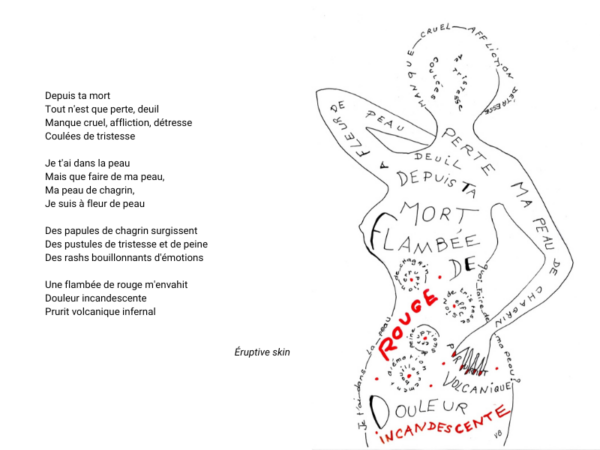 Depuis ta mort
Tout n'est que perte, deuil
Manque cruel, affliction, détresse
Coulées de tristesse
Je t'ai dans la peau
Mais que faire de ma peau,
Ma peau de chagrin,
Je suis à fleur de peau
Des papules de chagrin surgissent
Des pustules de tristesse et de peine
Des rashs bouillonnants d'émotions
Une flambée de rouge m'envahit
Douleur incandescente
Prurit volcanique infernal
Éruptive skin
MANQUE CRUEL AFFLICTION DÉTRESSE
coulées de tristesse
À FLEUR DE PEAU
PERTE MA PEAU DE CHAGRIN
DEUIL
DEPUIS TA
MORT
FLAMBÉE
DE
ROUGE
que faire de ma peau?
Je t'ai dans la peau
PRURIT
VOLCANIQUE
DOULEUR
INCANDESCENTE